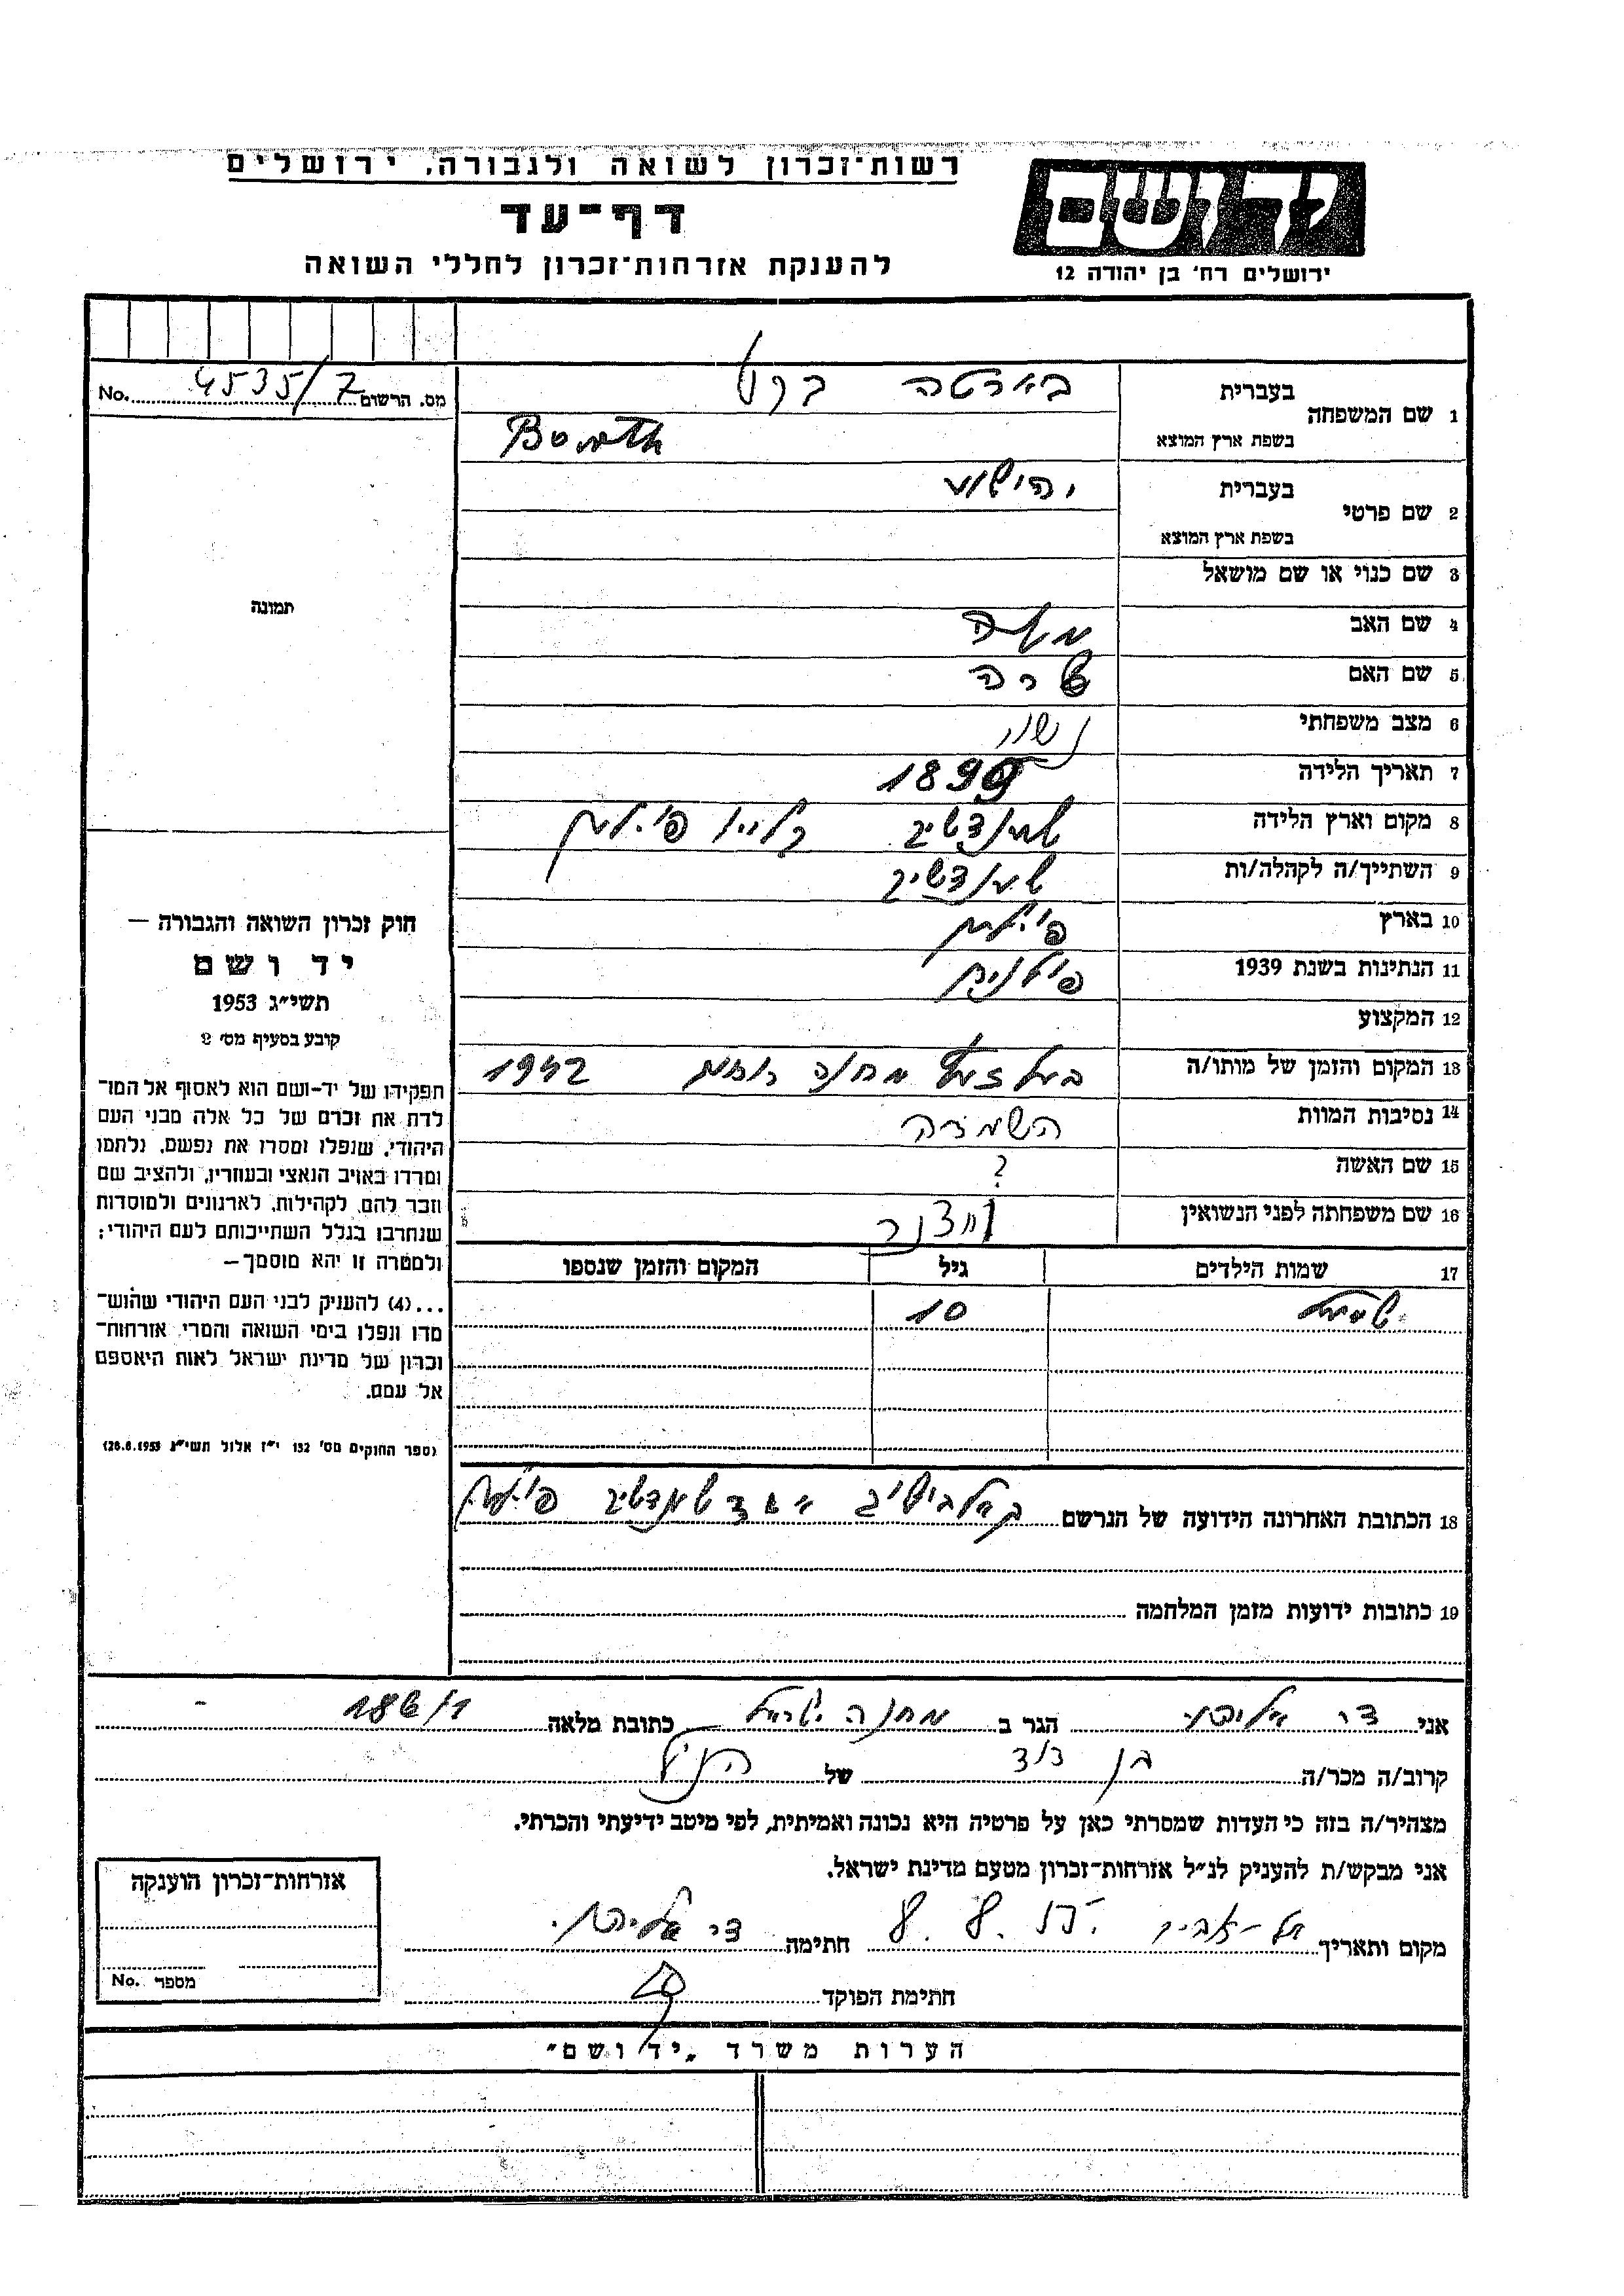 רשות־זכרון לשואה ולגבורה, ירושלים
דף־עד
להענקת אזרחות־זכרון לחללי השואה
יד ושם
ירושלים רח' בן יהודה 12
מס. הרשום 4535/7 No.
תמונה
חוק זכרון השואה והגבורה —
יד ושם
תשי״ג 1953
קובע בסעיף מס׳ 2
תפקידו של יד-ושם הוא לאסוף אל המו־
לדת את זכרם של כל אלה מבני העם
היהודי, שנפלו ומסרו את נפשם, נלחמו
ומרדו באויב הנאצי ובעוזריו, ולהציב שם
וזכר להם, לקהילות, לארגונים ולמוסדות
שנחרבו בגלל השתייכותם לעם היהודי;
ולמטרה זו יהא מוסמך —
...(4) להעניק לבני העם היהודי שהוש־
מדו ונפלו בימי השואה והמרי אזרחות־
זכרון של מדינת ישראל לאות היאספם
אל עמם.
(ספר החוקים מס׳ 132 י״ז אלול תשי״ג 28.8.1953)
1 שם המשפחה
בעברית
בשפת ארץ המוצא
2 שם פרטי
בעברית יהושע
בשפת ארץ המוצא
3 שם כנוי או שם מושאל
4 שם האב משה
5 שם האם שרה
6 מצב משפחתי נשוי
7 תאריך הלידה 1899
8 מקום וארץ הלידה פולין
9 השתייך/ה לקהלה/ות
10 בארץ פולין
11 הנתינות בשנת 1939 פולנית
12 המקצוע
13 המקום והזמן של מותו/ה מחנה 1942
14 נסיבות המוות השמדה
15 שם האשה ?
16 שם משפחתה לפני הנשואין
17 שמות הילדים גיל המקום והזמן שנספו
שמואל 10
18 הכתובת האחרונה הידועה של הנרשם פולין
19 כתובות ידועות מזמן המלחמה
אני הגר ב מחנה ישראל כתובת מלאה 186/1
קרוב/ה מכר/ה בן דוד של הנ״ל
מצהיר/ה בזה כי העדות שמסרתי כאן על פרטיה היא נכונה ואמיתית, לפי מיטב ידיעתי והכרתי.
אני מבקש/ת להעניק לנ״ל אזרחות־זכרון מטעם מדינת ישראל.
מקום ותאריך תל-אביב חתימה
חתימת הפוקד
אזרחות־זכרון הוענקה
מספר No.
הערות משרד „יד ושם״